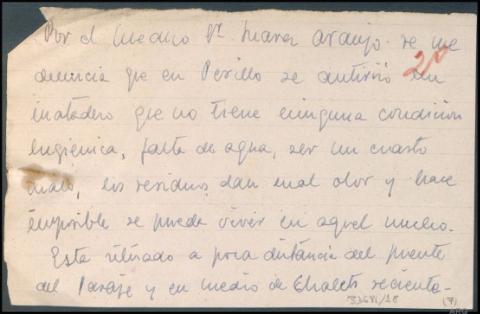 Por el medico Sr Suarez Araujo. se me
denuncia que en Perillo se autorizó un
20
matadero que no tiene ninguna condicion
higienica, falta de agua, ser un cuarto
malo, los residuos dan mal olor y hace
imposible se pueda vivir en aquel nucleo.
Esta situado a poca distancia del puente
del Pasaje y en medio de Chalets reciente-
33681/18
(7)